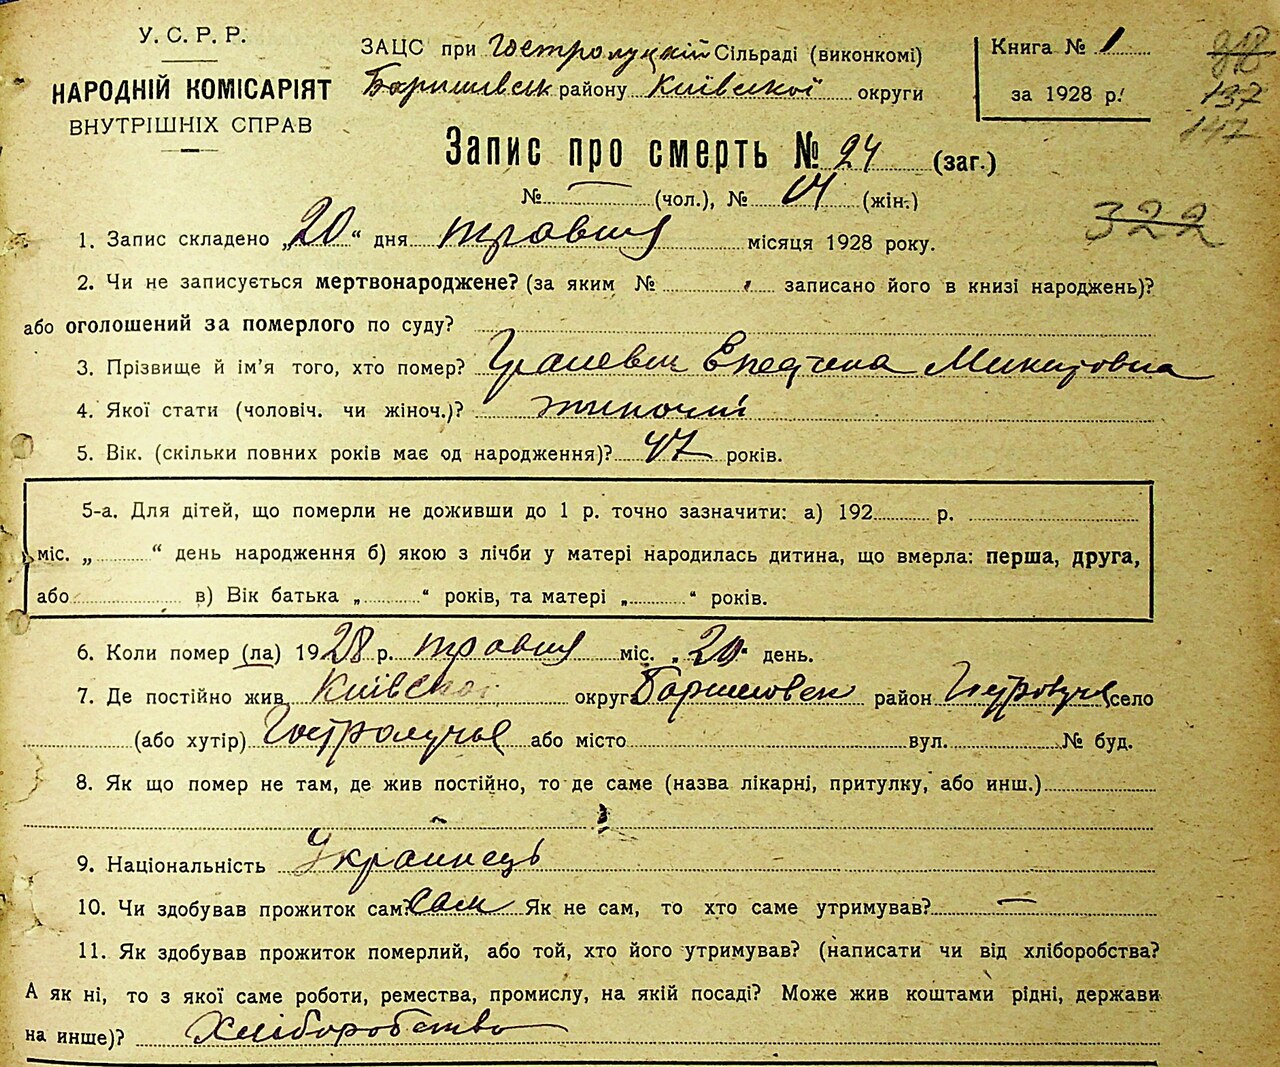 У. С. Р. Р.
НАРОДНІЙ КОМІСАРІЯТ
ВНУТРІШНІХ СПРАВ
ЗАЦС при Гостролуцкій Сільраді (виконкомі)
Баришівськ району Київської округи
Книга № 1
за 1928 р.
318
137
147
Запис про смерть № 24 (заг.)
№ — (чол.), № 14 (жін.)
322
1. Запис складено „20“ дня травня місяця 1928 року.
2. Чи не записується мертвонароджене? (за яким № записано його в книзі народжень)?
або оголошений за померлого по суду?
3. Прізвище й ім'я того, хто помер? Микитовна
4. Якої стати (чоловіч. чи жіноч.)? жиночій
5. Вік. (скільки повних років має од народження)? 47 років.
5-а. Для дітей, що померли не доживши до 1 р. точно зазначити: а) 192 р.
міс. „ “ день народження б) якою з лічби у матері народилась дитина, що вмерла: перша, друга,
або в) Вік батька „ “ років, та матері „ “ років.
6. Коли помер (ла) 1928 р. травня міс. „20“ день.
7. Де постійно жив Київско округ Баришовск район Гостролуче село
(або хутір) Гостролучье або місто вул. № буд.
8. Як що помер не там, де жив постійно, то де саме (назва лікарні, притулку, або инш.)
9. Національність Украинець
10. Чи здобував прожиток сам? Сам Як не сам, то хто саме утримував? —
11. Як здобував прожиток померлий, або той, хто його утримував? (написати чи від хліборобства?
А як ні, то з якої саме роботи, ремества, промислу, на якій посаді? Може жив коштами рідні, держави
на инше)? Хліборобство